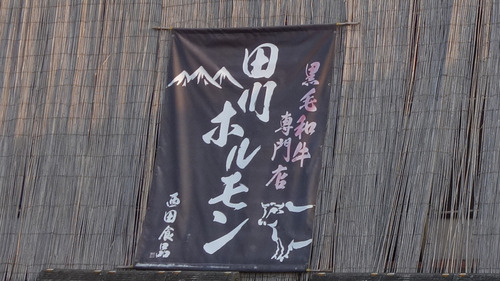 黒毛和牛
専門店
田川
ホルモン
西田食品